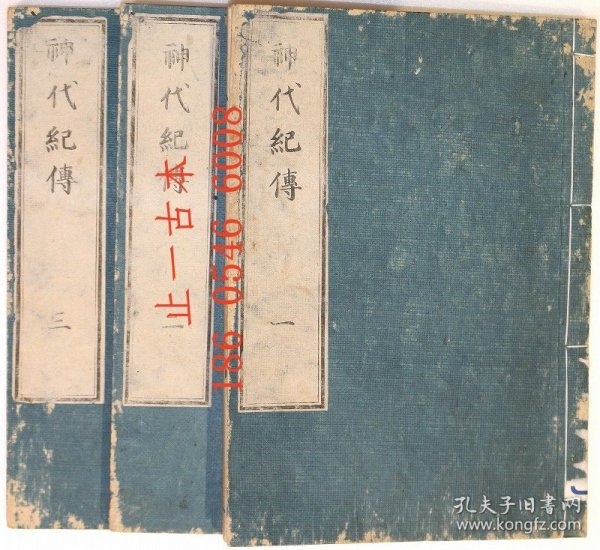 神代紀傳
三
神代紀傳
神代紀傳
一
正一古本
186 0546 6008
孔夫子旧书网
www.kongfz.com